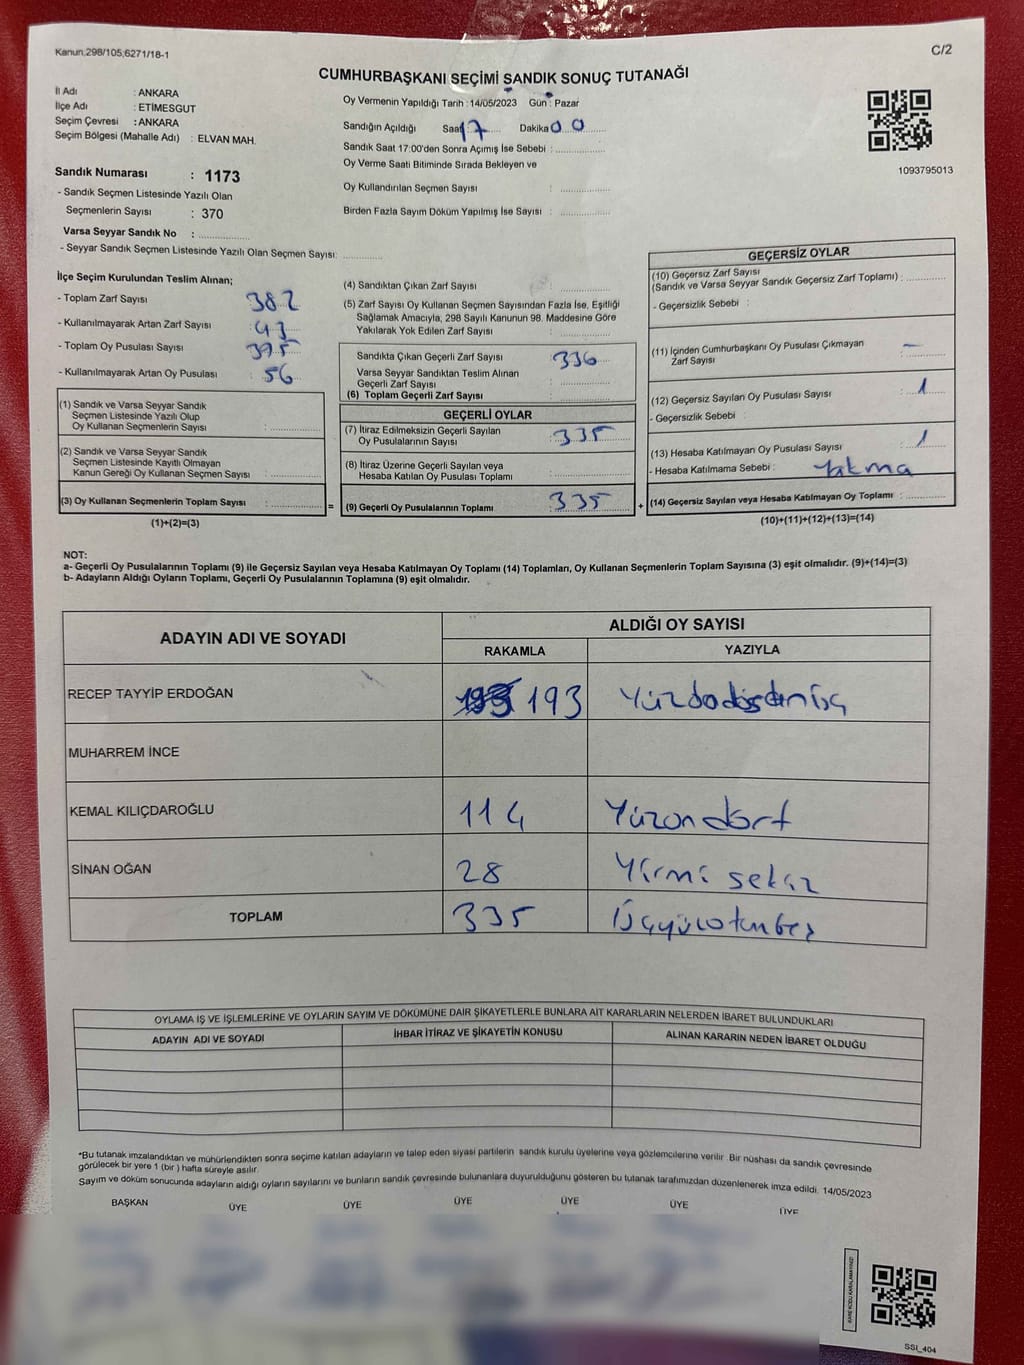 Kanun.298/105;6271/18-1
C/2
CUMHURBAŞKANI SEÇİMİ SANDIK SONUÇ TUTANAĞI
İl Adı : ANKARA
İlçe Adı : ETİMESGUT
Seçim Çevresi : ANKARA
Seçim Bölgesi (Mahalle Adı) : ELVAN MAH.
Oy Vermenin Yapıldığı Tarih : 14/05/2023 Gün : Pazar
Sandığın Açıldığı Saat 17 Dakika 00
Sandık Saat 17:00'den Sonra Açımış İse Sebebi :
Oy Verme Saati Bitiminde Sırada Bekleyen ve
Oy Kullandırılan Seçmen Sayısı :
Birden Fazla Sayım Döküm Yapılmış İse Sayısı :
1093795013
Sandık Numarası : 1173
- Sandık Seçmen Listesinde Yazılı Olan
Seçmenlerin Sayısı : 370
Varsa Seyyar Sandık No :
- Seyyar Sandık Seçmen Listesinde Yazılı Olan Seçmen Sayısı:
İlçe Seçim Kurulundan Teslim Alınan;
- Toplam Zarf Sayısı 382
- Kullanılmayarak Artan Zarf Sayısı : 43
- Toplam Oy Pusulası Sayısı 395
- Kullanılmayarak Artan Oy Pusulası : 56
(1) Sandık ve Varsa Seyyar Sandık
Seçmen Listesinde Yazılı Olup
Oy Kullanan Seçmenlerin Sayısı :
(2) Sandık ve Varsa Seyyar Sandık
Seçmen Listesinde Kayıtlı Olmayan
Kanun Gereği Oy Kullanan Seçmen Sayısı :
(3) Oy Kullanan Seçmenlerin Toplam Sayısı :
(1)+(2)=(3)
=
(4) Sandıktan Çıkan Zarf Sayısı :
(5) Zarf Sayısı Oy Kullanan Seçmen Sayısından Fazla İse, Eşitliği
Sağlamak Amacıyla, 298 Sayılı Kanunun 98. Maddesine Göre
Yakılarak Yok Edilen Zarf Sayısı :
Sandıkta Çıkan Geçerli Zarf Sayısı 336
Varsa Seyyar Sandıktan Teslim Alınan
Geçerli Zarf Sayısı :
(6) Toplam Geçerli Zarf Sayısı :
GEÇERLİ OYLAR
(7) İtiraz Edilmeksizin Geçerli Sayılan
Oy Pusulalarının Sayısı : 335
(8) İtiraz Üzerine Geçerli Sayılan veya
Hesaba Katılan Oy Pusulası Toplamı :
(9) Geçerli Oy Pusulalarının Toplamı : 335
+
GEÇERSİZ OYLAR
(10) Geçersiz Zarf Sayısı
(Sandık ve Varsa Seyyar Sandık Geçersiz Zarf Toplamı) :
- Geçersizlik Sebebi :
(11) İçinden Cumhurbaşkanı Oy Pusulası Çıkmayan
Zarf Sayısı : -
(12) Geçersiz Sayılan Oy Pusulası Sayısı : 1
- Geçersizlik Sebebi :
(13) Hesaba Katılmayan Oy Pusulası Sayısı : 1
- Hesaba Katılmama Sebebi : Yakma
(14) Geçersiz Sayılan veya Hesaba Katılmayan Oy Toplamı :
(10)+(11)+(12)+(13)=(14)
NOT:
a- Geçerli Oy Pusulalarının Toplamı (9) ile Geçersiz Sayılan veya Hesaba Katılmayan Oy Toplamı (14) Toplamları, Oy Kullanan Seçmenlerin Toplam Sayısına (3) eşit olmalıdır. (9)+(14)=(3)
b- Adayların Aldığı Oyların Toplamı, Geçerli Oy Pusulalarının Toplamına (9) eşit olmalıdır.
ADAYIN ADI VE SOYADI
ALDIĞI OY SAYISI
RAKAMLA
YAZIYLA
RECEP TAYYİP ERDOĞAN 193
MUHARREM İNCE
KEMAL KILIÇDAROĞLU 114 Yüzondört
SİNAN OĞAN 28 Yirmi sekiz
TOPLAM 335 Üçyüzotuzbeş
OYLAMA İŞ VE İŞLEMLERİNE VE OYLARIN SAYIM VE DÖKÜMÜNE DAİR ŞİKAYETLERLE BUNLARA AİT KARARLARIN NELERDEN İBARET BULUNDUKLARI
ADAYIN ADI VE SOYADI
İHBAR İTİRAZ VE ŞİKAYETİN KONUSU
ALINAN KARARIN NEDEN İBARET OLDUĞU
*Bu tutanak imzalandıktan ve mühürlendikten sonra seçime katılan adayların ve talep eden siyasi partilerin sandık kurulu üyelerine veya gözlemcilerine verilir. Bir nüshası da sandık çevresinde
görülecek bir yere 1 (bir ) hafta süreyle asılır.
Sayım ve döküm sonucunda adayların aldığı oyların sayılarını ve bunların sandık çevresinde bulunanlara duyurulduğunu gösteren bu tutanak tarafımızdan düzenlenerek imza edildi. 14/05/2023
BAŞKAN ÜYE ÜYE ÜYE ÜYE ÜYE ÜYE
KARE KODU KARALAMAYINIZ!
SSI_404